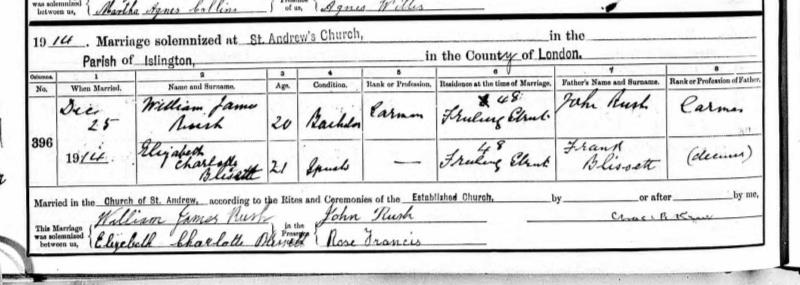 was solemnized between us, Martha Agnes Collins of us, Agnes Willis
1914. Marriage solemnized at St. Andrew's Church, in the
Parish of Islington, in the County of London.
Columns. 1 2 3 4 5 6 7 8
No. When Married. Name and Surname. Age. Condition. Rank or Profession. Residence at the time of Marriage. Father's Name and Surname. Rank or Profession of Father.
396
Dec 25 1914.
William James Rush 20 Bachelor Carman 48 Street John Rush Carman
Elizabeth Charlotte Blissett 21 Spinster — 48 Street Frank Blissett (deceased)
Married in the Church of St. Andrew, according to the Rites and Ceremonies of the Established Church, by or after by me,
This Marriage was solemnized between us, William James Rush in the Presence of us, John Rush
Elizebeth Charlotte Blissett Rose Francis